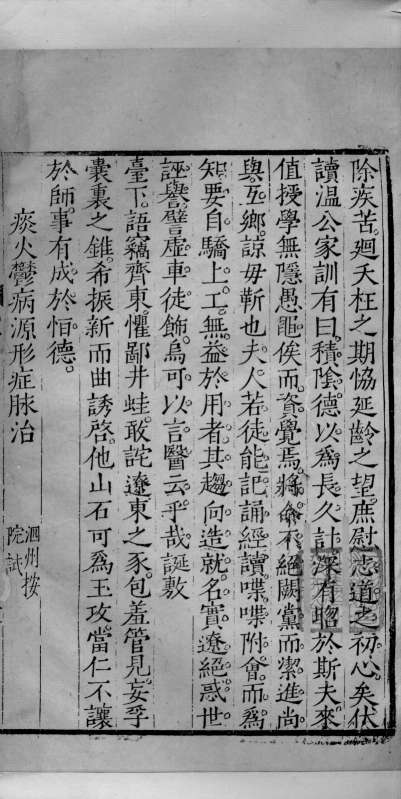 除疾苦。廻夭枉之期。恊延齡之望。庶慰志道之初心矣。伏
讀溫公家訓有曰。積陰德以爲長久計。深有㗖於斯。夫來
值授學無隱愚。黽俟而資覺焉。將命不絕闕黨而潔進尚
與互鄉。諒毋靳也。夫人若徒能記誦經讀。喋喋附會。而爲
知要自驕上工。無益於用者。其趨向造就。名實遼絕。惑世
誣譽。譬虛車徒飾。烏可以言醫云乎哉。誕敷
臺下。語竊齊東。懼鄙井蛙。敢詫遼東之豕。包羞管見。妄孚
囊裹之錐。希振新而曲誘啓。他山石可爲玉攻。當仁不讓
於師。事有成於恒德。
痰火鬱病源形症脉治
泗州按
院試